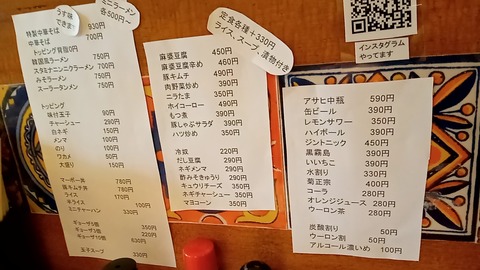 うす味
できます
ミニラーメン
各500円~
特製中華そば 930円
中華そば 700円
トッピング背脂0円
韓国風ラーメン 750円
スタミナニンニクラーメン 750円
みそラーメン 750円
スーラータンメン 750円
トッピング
味付玉子 90円
チャーシュー 290円
白ネギ 150円
メンマ 100円
のり 100円
ワカメ 50円
大盛り 150円
マーボー丼 780円
豚キムチ丼 780円
ライス 170円
半ライス 100円
ミニチャーハン 330円
ギョーザ5個 350円
ギョーザ3個 220円
ギョーザ15個 830円
玉子スープ 330円
定食各種+330円
ライス、スープ、漬物付き
麻婆豆腐 450円
麻婆豆腐辛め 460円
豚キムチ 490円
肉野菜炒め 390円
ニラたま 350円
ホイコーロー 490円
もつ煮 390円
豚しゃぶサラダ 390円
ハツ炒め 350円
冷奴 220円
だし豆腐 290円
ネギメンマ 290円
酢みそきゅうり 290円
キュウリチーズ 350円
ネギチャーシュー 350円
マヨコーン 350円
インスタグラム
やってます
アサヒ中瓶 590円
缶ビール 390円
レモンサワー 350円
ハイボール 390円
ジントニック 450円
黒霧島 390円
いいちこ 390円
水割り 330円
菊正宗 400円
コーラ 280円
オレンジジュース 280円
ウーロン茶 280円
炭酸割り 50円
ウーロン割 50円
アルコール濃いめ 100円